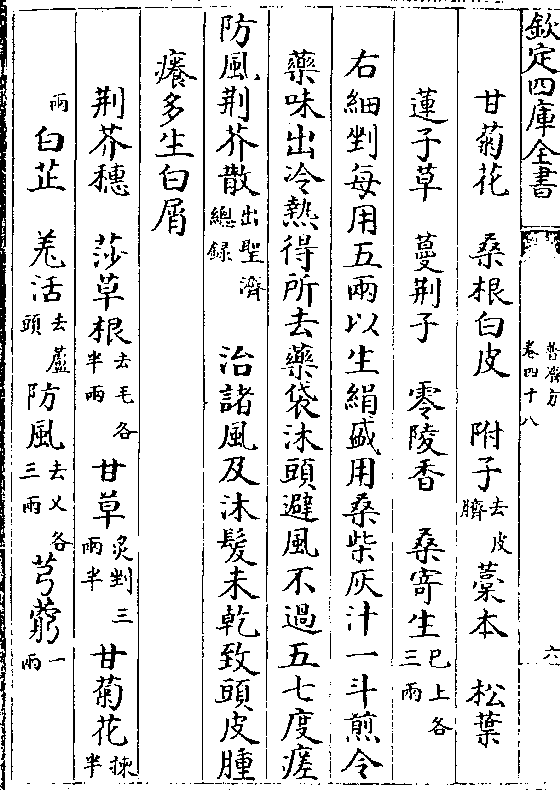 欽定四庫全書
普濟方
卷四十八
六
甘菊花 桑根白皮 附子去皮臍 藁本 松葉
蓮子草 蔓荆子 零陵香 桑寄生已上各三兩
右細剉每用五兩以生絹盛用桑柴灰汁一斗煎令
藥味出冷熱得所去藥袋沐頭避風不過五七度瘥
防風荆芥散出聖濟總録 治諸風及沐髮未乾致頭皮腫
癢多生白屑
荆芥穗 莎草根去毛各半兩 甘草炙剉三兩半 甘菊花揀半
兩 白芷 羌活去蘆頭 防風去乂各三兩 芎藭一兩